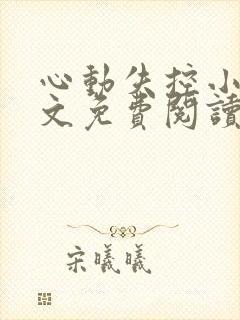 心動失控小
文免費閱讀
宋曦曦